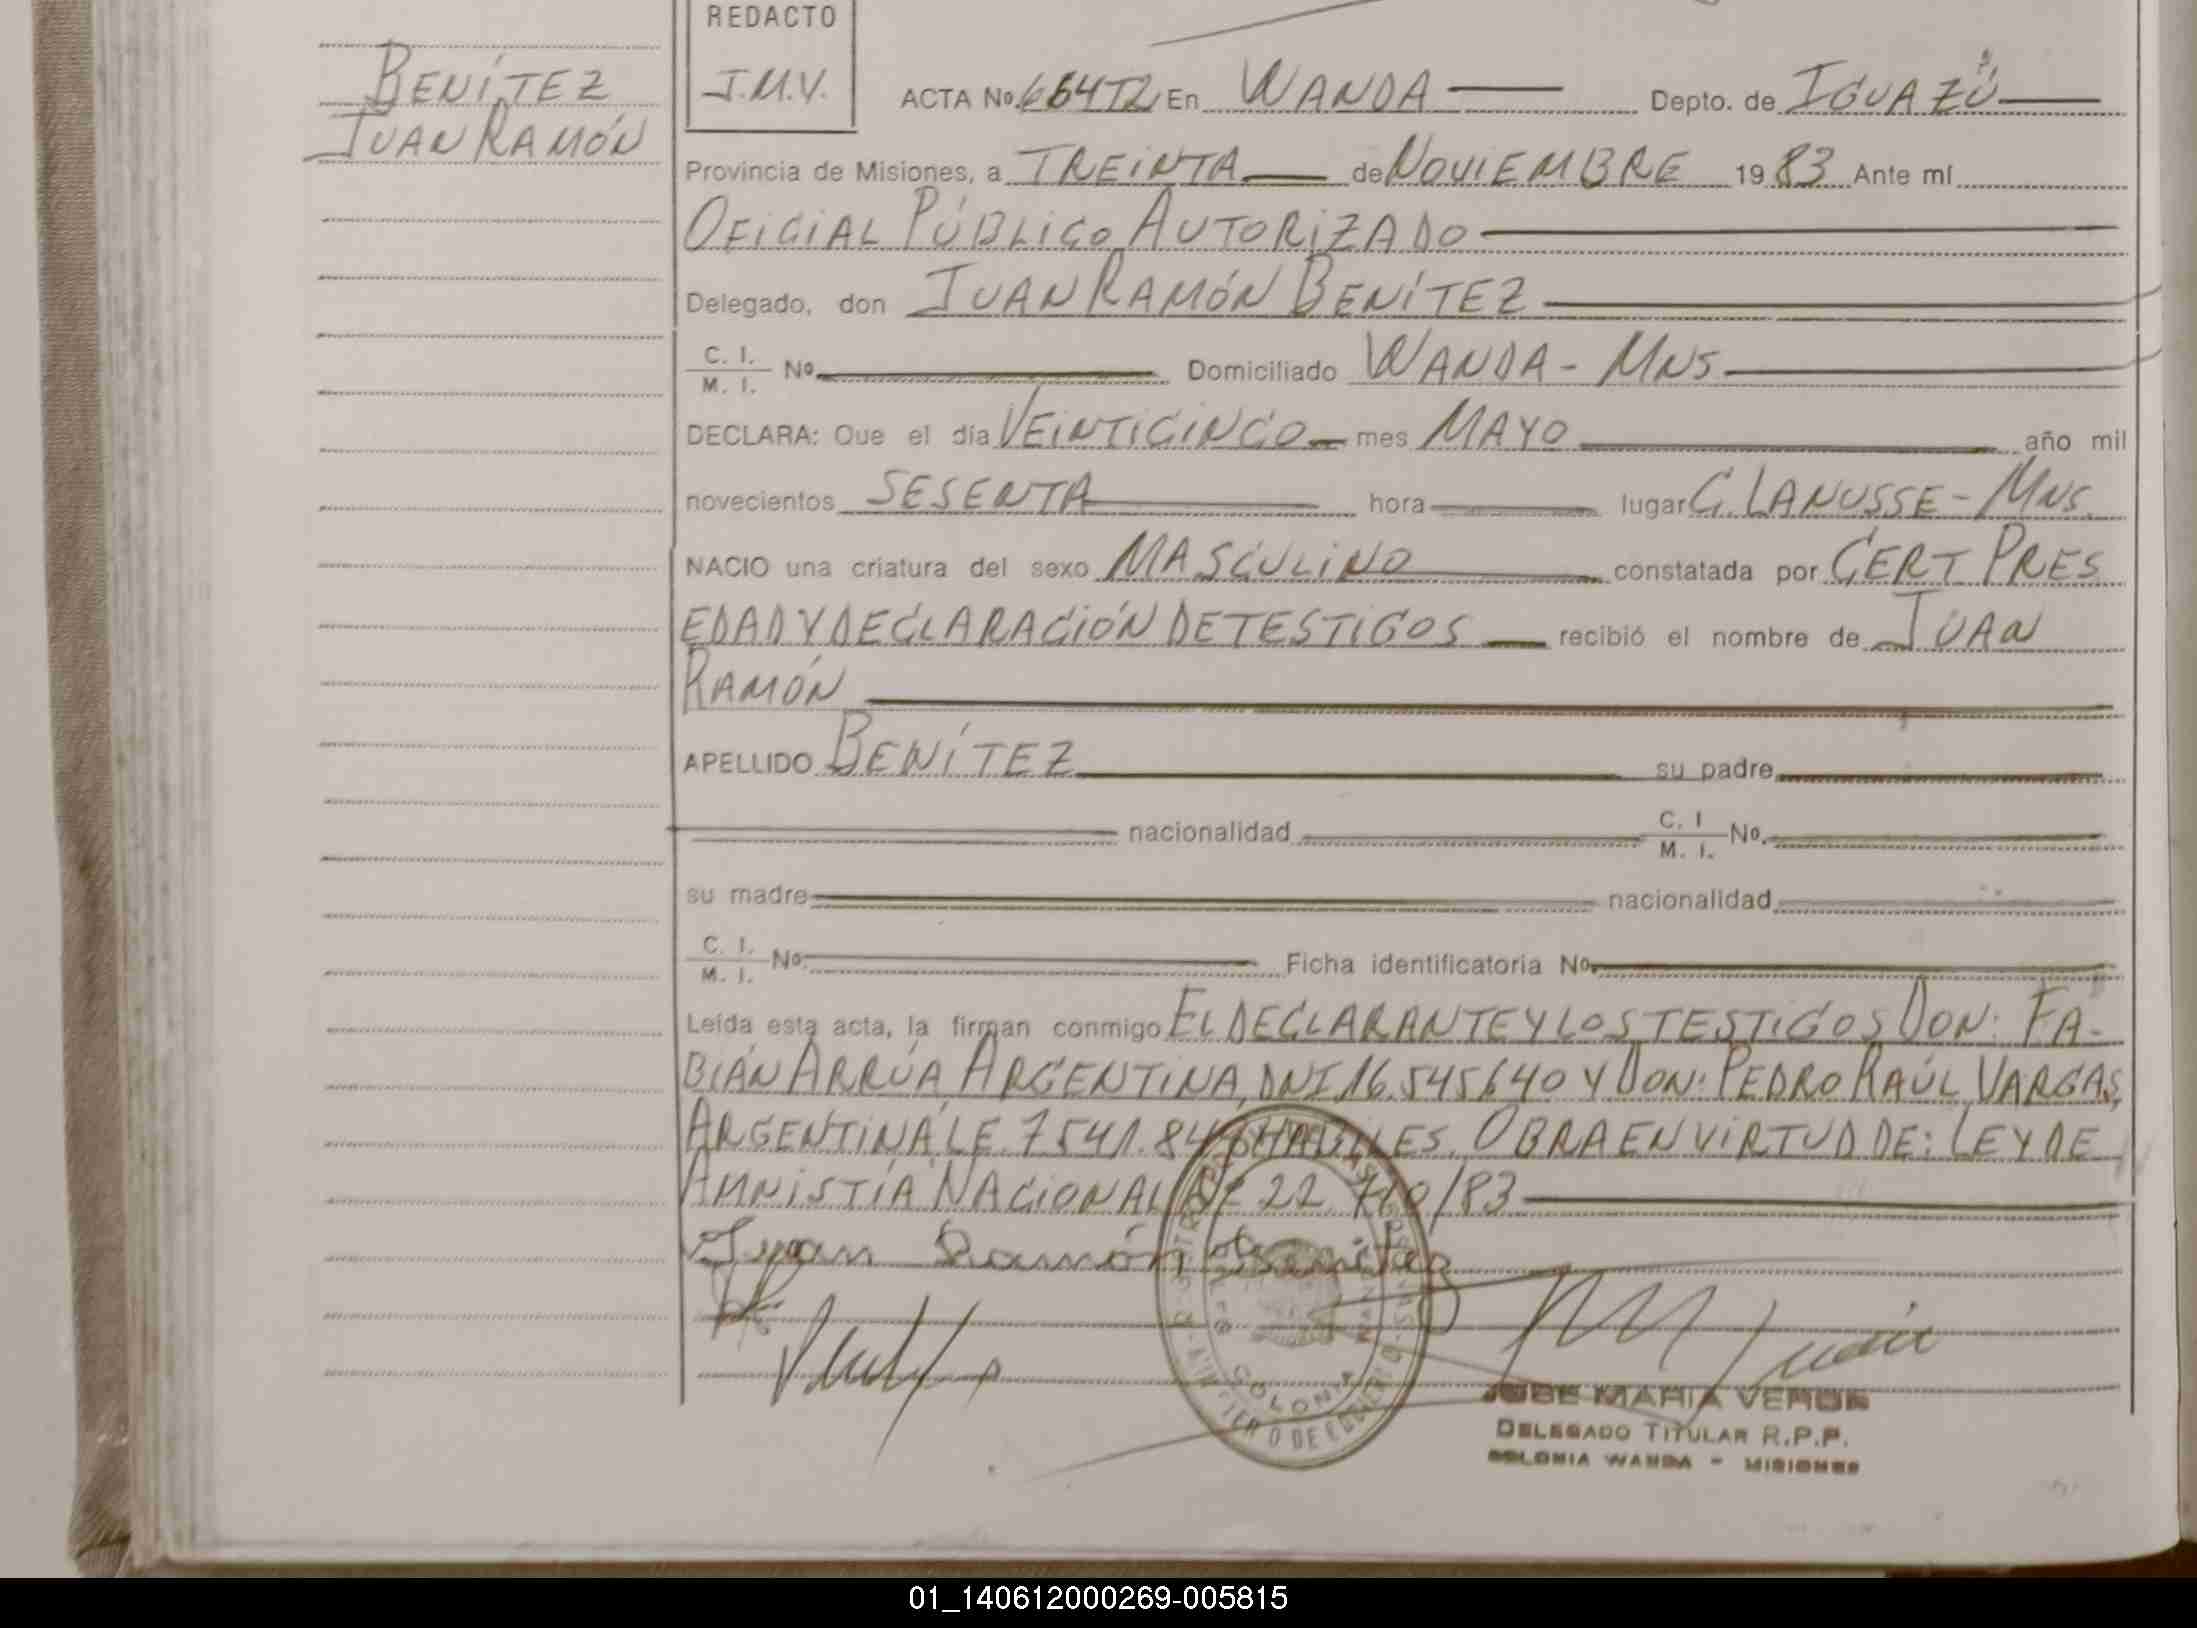 REDACTO
J.M.V.
BENÍTEZ
JUAN RAMÓN
ACTA No. 664T2 En WANDA Depto. de IGUAZÚ
Provincia de Misiones, a TREINTA de NOVIEMBRE 1983 Ante mí
OFICIAL PÚBLICO AUTORIZADO
Delegado, don JUAN RAMÓN BENÍTEZ
C. I. M. I. No Domiciliado WANDA - MNS
DECLARA: Que el día VEINTICINCO mes MAYO año mil
novecientos SESENTA hora lugar C. LANUSSE - MNS.
NACIO una criatura del sexo MASCULINO constatada por CERT PRES
EDAD Y DECLARACIÓN DE TESTIGOS recibió el nombre de JUAN
RAMÓN
APELLIDO BENÍTEZ su padre
nacionalidad C. I M. I. No.
su madre nacionalidad
C. I. M. I. No. Ficha identificatoria No.
Leída esta acta, la firman conmigo EL DECLARANTE Y LOS TESTIGOS DON: FA-
BIÁN ARRÚA ARGENTINA, DNI 16.545640 Y DON: PEDRO RAÚL VARGAS,
ARGENTINA, LE. 7541.84 HABILES. OBRA EN VIRTUD DE: LEY DE
AMNISTÍA NACIONAL Nº 22. /83
Juan Ramón Benitez
COLONIA
JOSE MARIA VERON
DELEGADO TITULAR R.P.P.
COLONIA WANDA - MISIONES
01_140612000269-005815